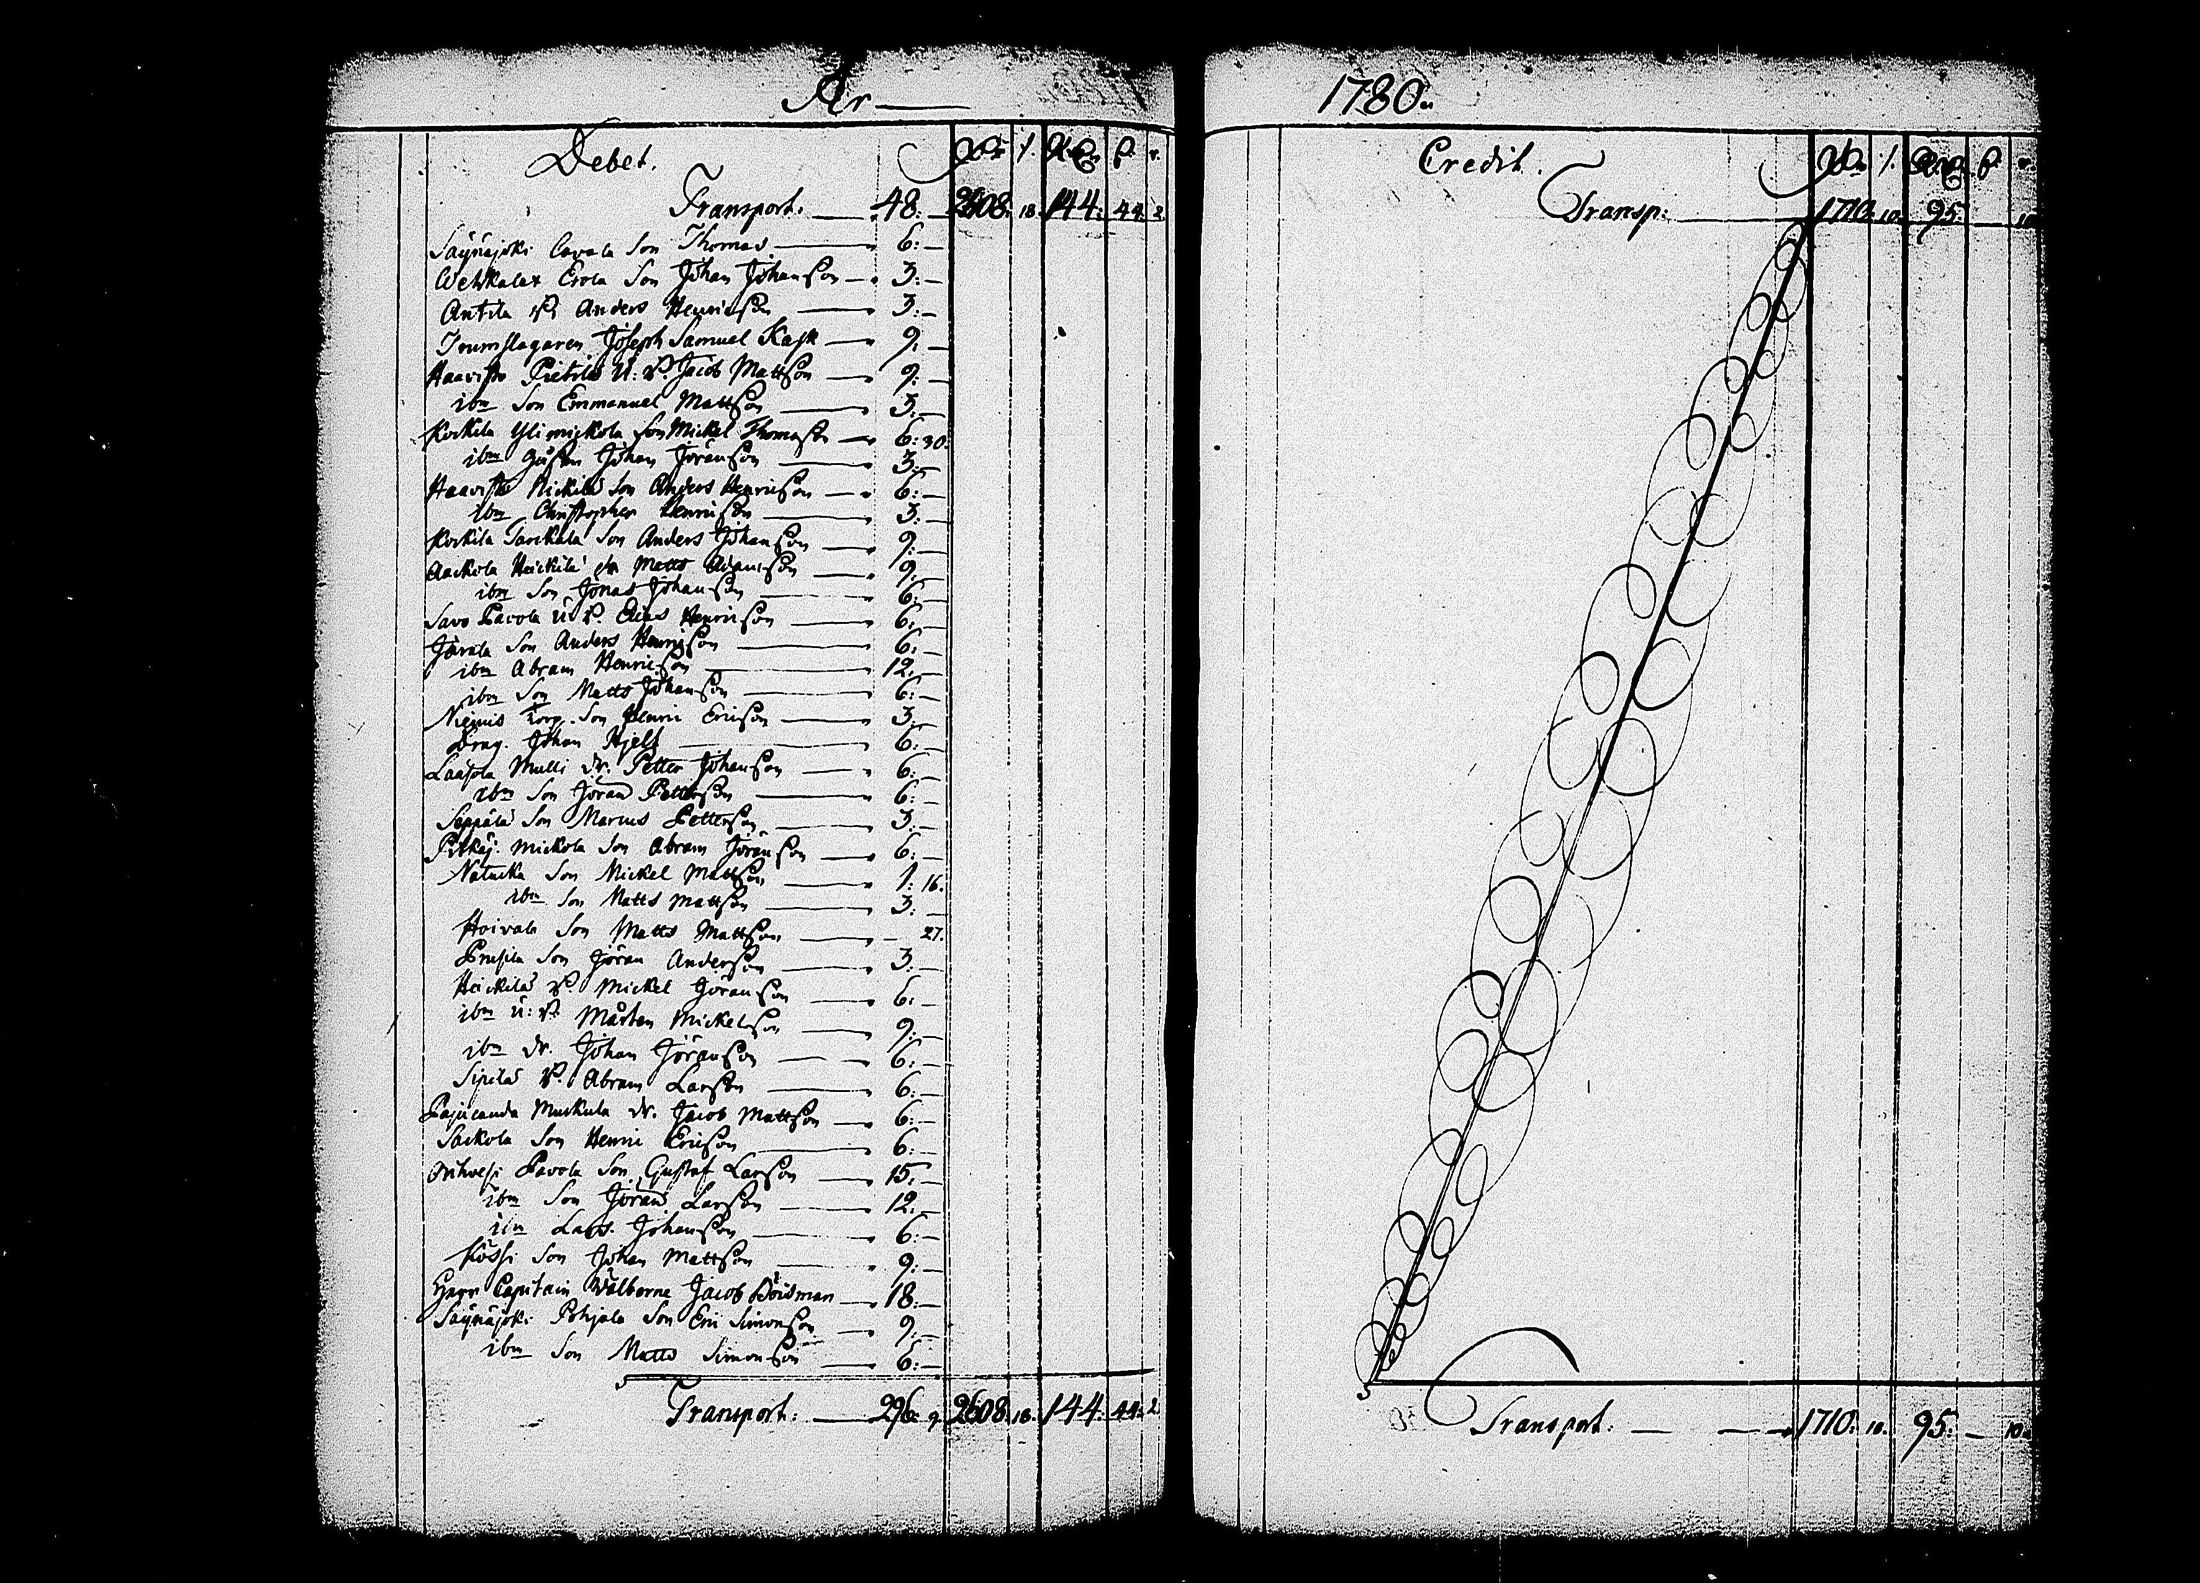 År
Debet.
Transport. 48: 2608: 18. 144: 44: 2
Säynäjoki Cavala Son Thomas 6:
Wehkalax Erola Son Johan Johanson 3:
Antila P. Anders Henricson 3:
Trumslagaren Joseph Samuel Kask 9:
Haavisto Pietilä U: P. Jacob Mattson 9:
ibm Son Emmanuel Mattson 3:
Korkila Ylimickola Son Mickel Thomason 6: 30.
ibm Johan Jöranson 3:
Haavisto Nickilä Son Anders Henricson 6:
ibm Christopher Henricson 3:
Korkila Son Anders Johanson 9:
Aackola Heickilä dr Matts Adamson 9:
ibm Son Jonas Johanson 6:
Savo Pavola U. P. Elias Henricson 6:
Jörala Son Anders Henricson 6:
ibm Abram Henricson 12:
ibm Son Matts Johanson 6:
Niemis Torp. Son Henric Ericson 3:
Drag. Johan Hjelt 6:
Laasola Mulli dr. Petter Johanson 6:
ibm Son Jöran Petterson 6:
Seppälä Son Marcus Petterson 3:
Pitkäj. Mickola Son Abram Jöranson 6:
Natucka Son Mickel Mattson 1: 16.
ibm Son Matts Mattson 3:
Hoivala Son Matts Mattson 27.
Son Jöran Anderson 3:
Heickilä P. Mickel Jöranson 6:
ibm U: P. Mårten Mickelson 9:
ibm dr. Johan Jöranson 6:
Sipilä P. Abram Larson 6:
Muckula dr. Jacob Mattson 6:
Sackola Son Henric Ericson 6:
Orihvesi Pavola Son Gustaf Larson 15:
ibm Son Jöran Larson 12:
ibm Lars Johanson 6:
Kossi Son Johan Mattson 9:
Herr Capitain Välborne Jacob Böisman 18:
Säynäjoki Pohjala Son Eric Simonson 9:
ibm Son Matts Simonson 6:
Transport: 296: 9. 2608: 18. 144: 44: 2
1780.
Credit.
Transp: 1710: 10. 95: 10
Transport: 1710: 10. 95: 10.